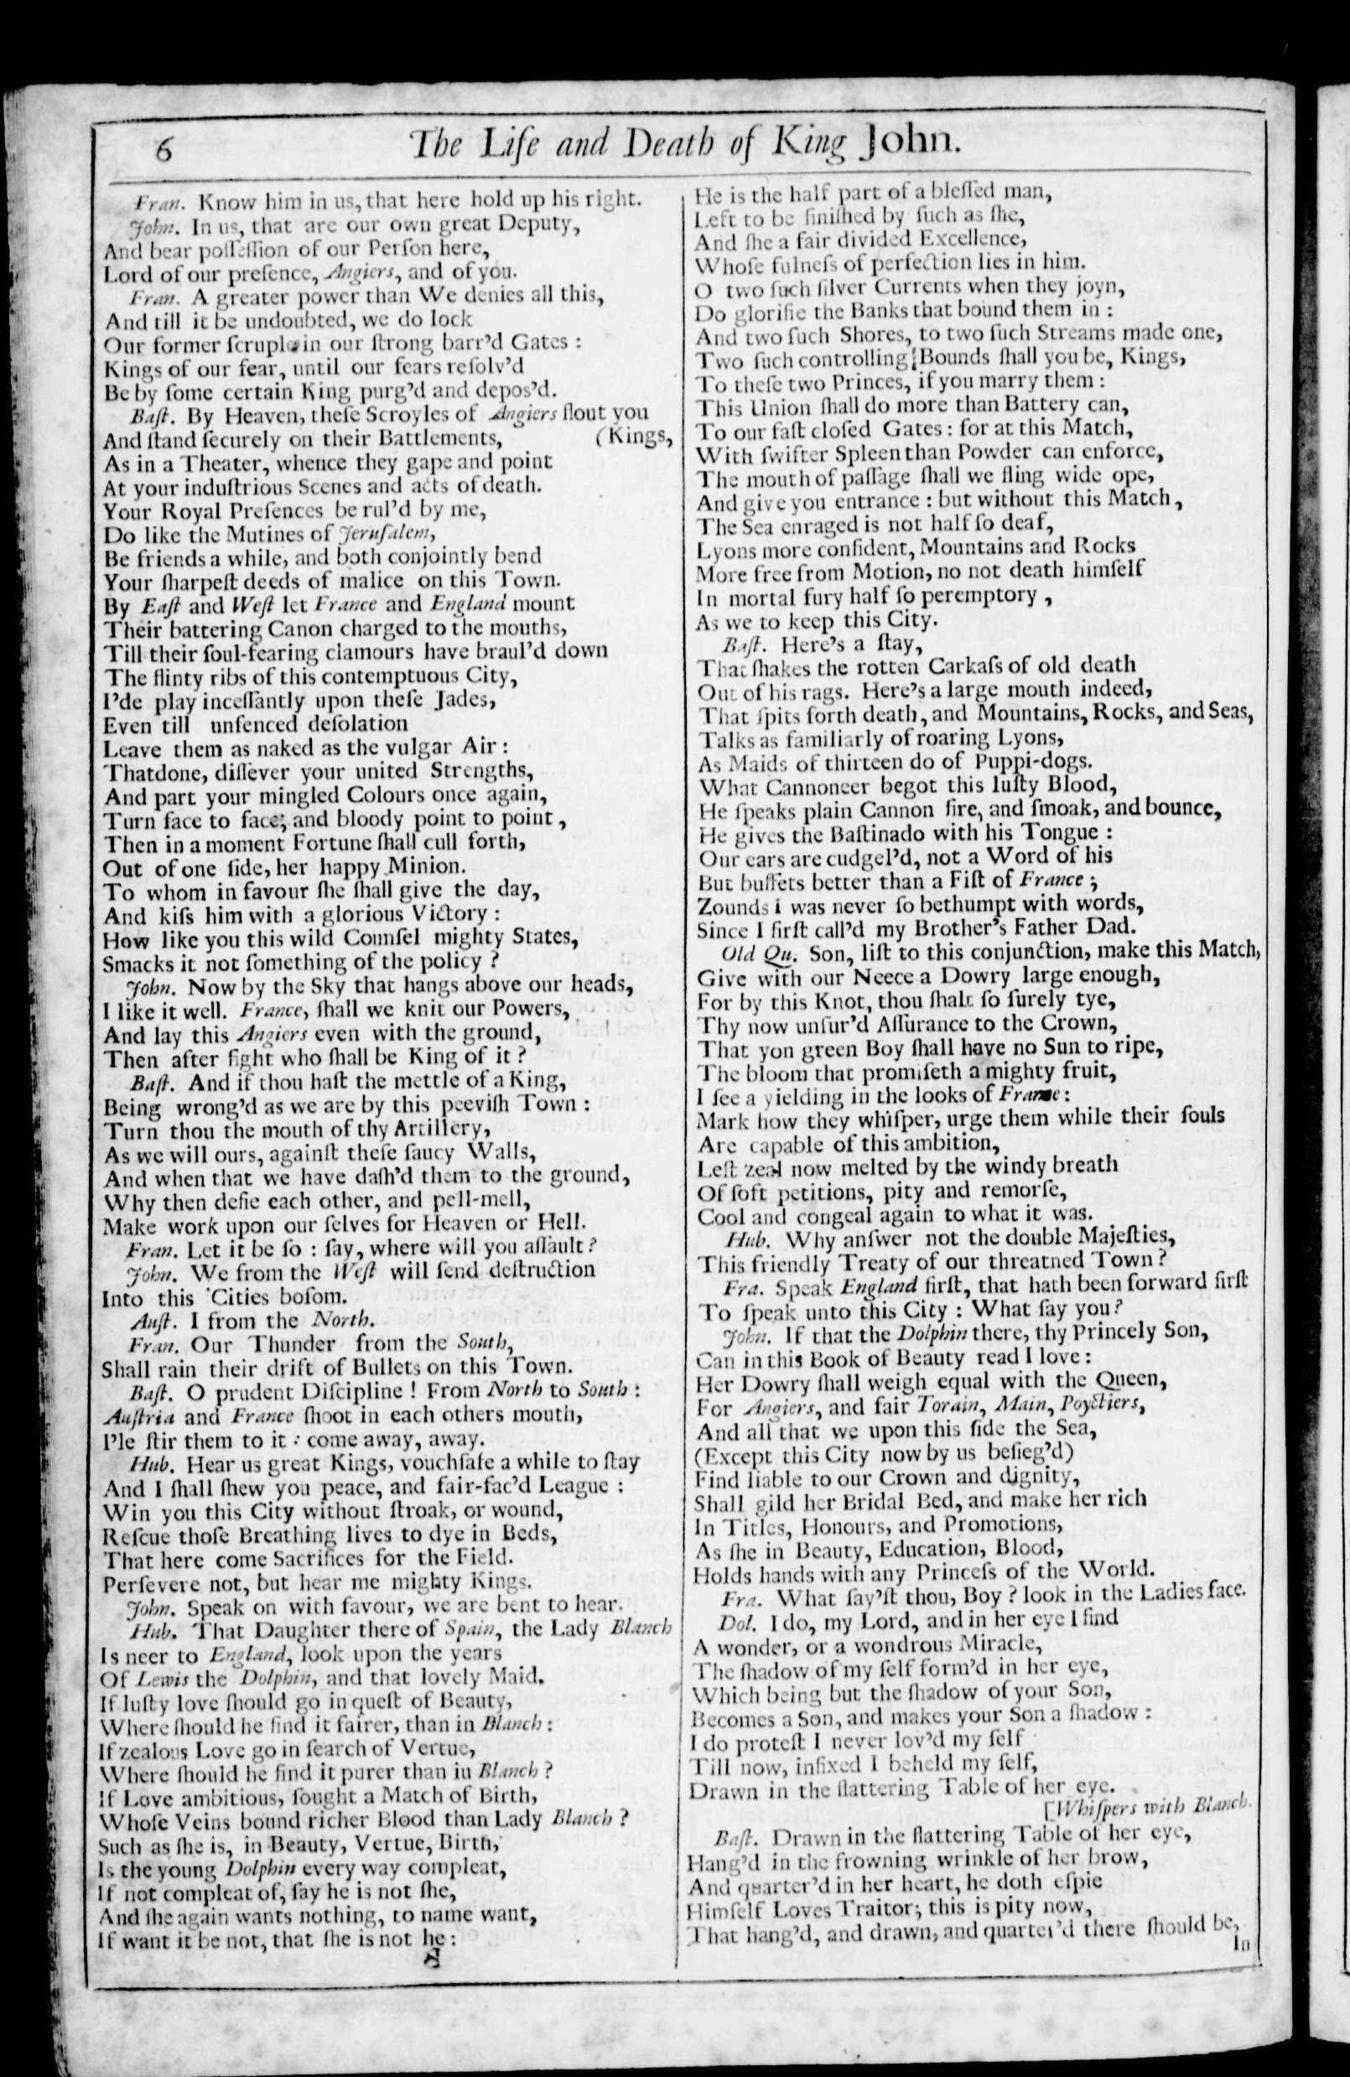 6
The Life and Death of King John.
Fran. Know him in us, that here hold up his right.
John. In us, that are our own great Deputy,
And bear poſſeſſion of our Perſon here,
Lord of our preſence, Angiers, and of you.
Fran. A greater power than We denies all this,
And till it be undoubted, we do lock
Our former ſcruple in our ſtrong barr'd Gates :
Kings of our fear, until our fears reſolv'd
Be by ſome certain King purg'd and depos'd.
Baſt. By Heaven, theſe Scroyles of Angiers flout you
And ſtand ſecurely on their Battlements, (Kings,
As in a Theater, whence they gape and point
At your induſtrious Scenes and acts of death.
Your Royal Preſences be rul'd by me,
Do like the Mutines of Jeruſalem,
Be friends a while, and both conjointly bend
Your ſharpeſt deeds of malice on this Town.
By Eaſt and Weſt let France and England mount
Their battering Canon charged to the mouths,
Till their ſoul-fearing clamours have braul'd down
The flinty ribs of this contemptuous City,
I'de play inceſſantly upon theſe Jades,
Even till unfenced deſolation
Leave them as naked as the vulgar Air :
Thatdone, diſſever your united Strengths,
And part your mingled Colours once again,
Turn face to face, and bloody point to point ,
Then in a moment Fortune ſhall cull forth,
Out of one ſide, her happy Minion.
To whom in favour ſhe ſhall give the day,
And kiſs him with a glorious Victory :
How like you this wild Counſel mighty States,
Smacks it not ſomething of the policy ?
John. Now by the Sky that hangs above our heads,
I like it well. France, ſhall we knit our Powers,
And lay this Angiers even with the ground,
Then after fight who ſhall be King of it ?
Baſt. And if thou haſt the mettle of a King,
Being wrong'd as we are by this peeviſh Town :
Turn thou the mouth of thy Artillery,
As we will ours, againſt theſe ſaucy Walls,
And when that we have daſh'd them to the ground,
Why then defie each other, and pell-mell,
Make work upon our ſelves for Heaven or Hell.
Fran. Let it be ſo : ſay, where will you aſſault ?
John. We from the Weſt will ſend deſtruction
Into this Cities boſom.
Auſt. I from the North.
Fran. Our Thunder from the South,
Shall rain their drift of Bullets on this Town.
Baſt. O prudent Diſcipline ! From North to South :
Auſtria and France ſhoot in each others mouth,
I'le ſtir them to it : come away, away.
Hub. Hear us great Kings, vouchſafe a while to ſtay
And I ſhall ſhew you peace, and fair-fac'd League :
Win you this City without ſtroak, or wound,
Reſcue thoſe Breathing lives to dye in Beds,
That here come Sacrifices for the Field.
Perſevere not, but hear me mighty Kings.
John. Speak on with favour, we are bent to hear.
Hub. That Daughter there of Spain, the Lady Blanch
Is neer to England, look upon the years
Of Lewis the Dolphin, and that lovely Maid.
If luſty love ſhould go in queſt of Beauty,
Where ſhould he find it fairer, than in Blanch :
If zealous Love go in ſearch of Vertue,
Where ſhould he find it purer than in Blanch ?
If Love ambitious, ſought a Match of Birth,
Whoſe Veins bound richer Blood than Lady Blanch ?
Such as ſhe is, in Beauty, Vertue, Birth,
Is the young Dolphin every way compleat,
If not compleat of, ſay he is not ſhe,
And ſhe again wants nothing, to name want,
If want it be not, that ſhe is not he :
He is the half part of a bleſſed man,
Left to be finiſhed by ſuch as ſhe,
And ſhe a fair divided Excellence,
Whoſe fulneſs of perfection lies in him.
O two ſuch ſilver Currents when they joyn,
Do glorifie the Banks that bound them in :
And two ſuch Shores, to two ſuch Streams made one,
Two ſuch controlling Bounds ſhall you be, Kings,
To theſe two Princes, if you marry them :
This Union ſhall do more than Battery can,
To our faſt cloſed Gates : for at this Match,
With ſwifter Spleen than Powder can enforce,
The mouth of paſſage ſhall we fling wide ope,
And give you entrance : but without this Match ,
The Sea enraged is not half ſo deaf,
Lyons more confident, Mountains and Rocks
More free from Motion, no not death himſelf
In mortal fury half ſo peremptory ,
As we to keep this City.
Baſt. Here's a ſtay,
That ſhakes the rotten Carkaſs of old death
Out of his rags. Here's a large mouth indeed,
That ſpits forth death, and Mountains, Rocks, and Seas,
Talks as familiarly of roaring Lyons,
As Maids of thirteen do of Puppi-dogs.
What Cannoneer begot this luſty Blood,
He ſpeaks plain Cannon fire, and ſmoak, and bounce,
He gives the Baſtinado with his Tongue :
Our ears are cudgel'd, not a Word of his
But buffets better than a Fiſt of France ;
Zounds i was never ſo bethumpt with words,
Since I firſt call'd my Brother's Father Dad.
Old Qu. Son, liſt to this conjunction, make this Match,
Give with our Neece a Dowry large enough,
For by this Knot, thou ſhalt ſo ſurely tye,
Thy now unſur'd Aſſurance to the Crown,
That yon green Boy ſhall have no Sun to ripe,
The bloom that promiſeth a mighty fruit,
I ſee a yielding in the looks of France :
Mark how they whiſper, urge them while their ſouls
Are capable of this ambition,
Leſt zeal now melted by the windy breath
Of ſoft petitions, pity and remorſe,
Cool and congeal again to what it was.
Hub. Why anſwer not the double Majeſties,
This friendly Treaty of our threatned Town ?
Fra. Speak England firſt, that hath been forward firſt
To ſpeak unto this City : What ſay you ?
John. If that the Dolphin there, thy Princely Son,
Can in this Book of Beauty read I love :
Her Dowry ſhall weigh equal with the Queen,
For Angiers, and fair Torain, Main, Poyctiers,
And all that we upon this ſide the Sea,
(Except this City now by us beſieg'd)
Find liable to our Crown and dignity,
Shall gild her Bridal Bed, and make her rich
In Titles, Honours, and Promotions,
As ſhe in Beauty, Education, Blood,
Holds hands with any Princeſs of the World.
Fra. What ſay'ſt thou, Boy ? look in the Ladies face.
Dol. I do, my Lord, and in her eye I find
A wonder, or a wondrous Miracle,
The ſhadow of my ſelf form'd in her eye,
Which being but the ſhadow of your Son,
Becomes a Son, and makes your Son a ſhadow :
I do proteſt I never lov'd my ſelf
Till now, infixed I beheld my ſelf,
Drawn in the flattering Table of her eye.
[Whiſpers with Blanch.
Baſt. Drawn in the flattering Table of her eye,
Hang'd in the frowning wrinkle of her brow,
And quarter'd in her heart, he doth eſpie
Himſelf Loves Traitor; this is pity now,
That hang'd, and drawn, and quarter'd there ſhould be,
In